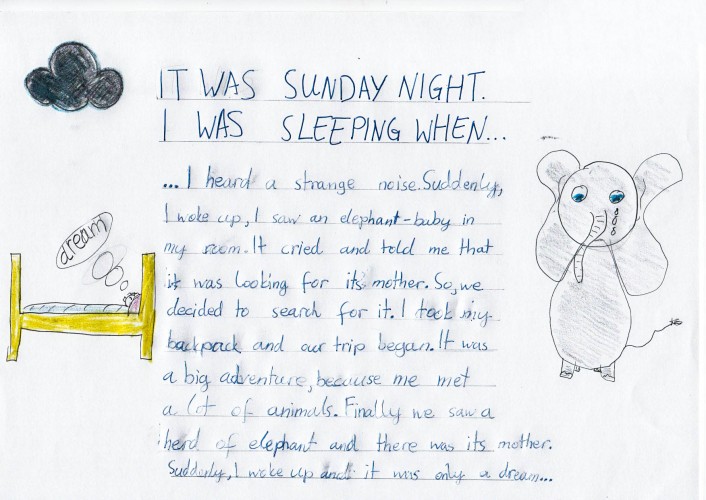 IT WAS SUNDAY NIGHT.
I WAS SLEEPING WHEN...
...I heard a strange noise. Suddenly,
I woke up, I saw an elephant-baby in
my room. It cried and told me that
it was looking for its mother. So, we
decided to search for it. I took my
backpack and our trip began. It was
a big adventure, because me met
a lot of animals. Finally we saw a
herd of elephant and there was its mother.
Suddenly, I woke up and it was only a dream...
dream